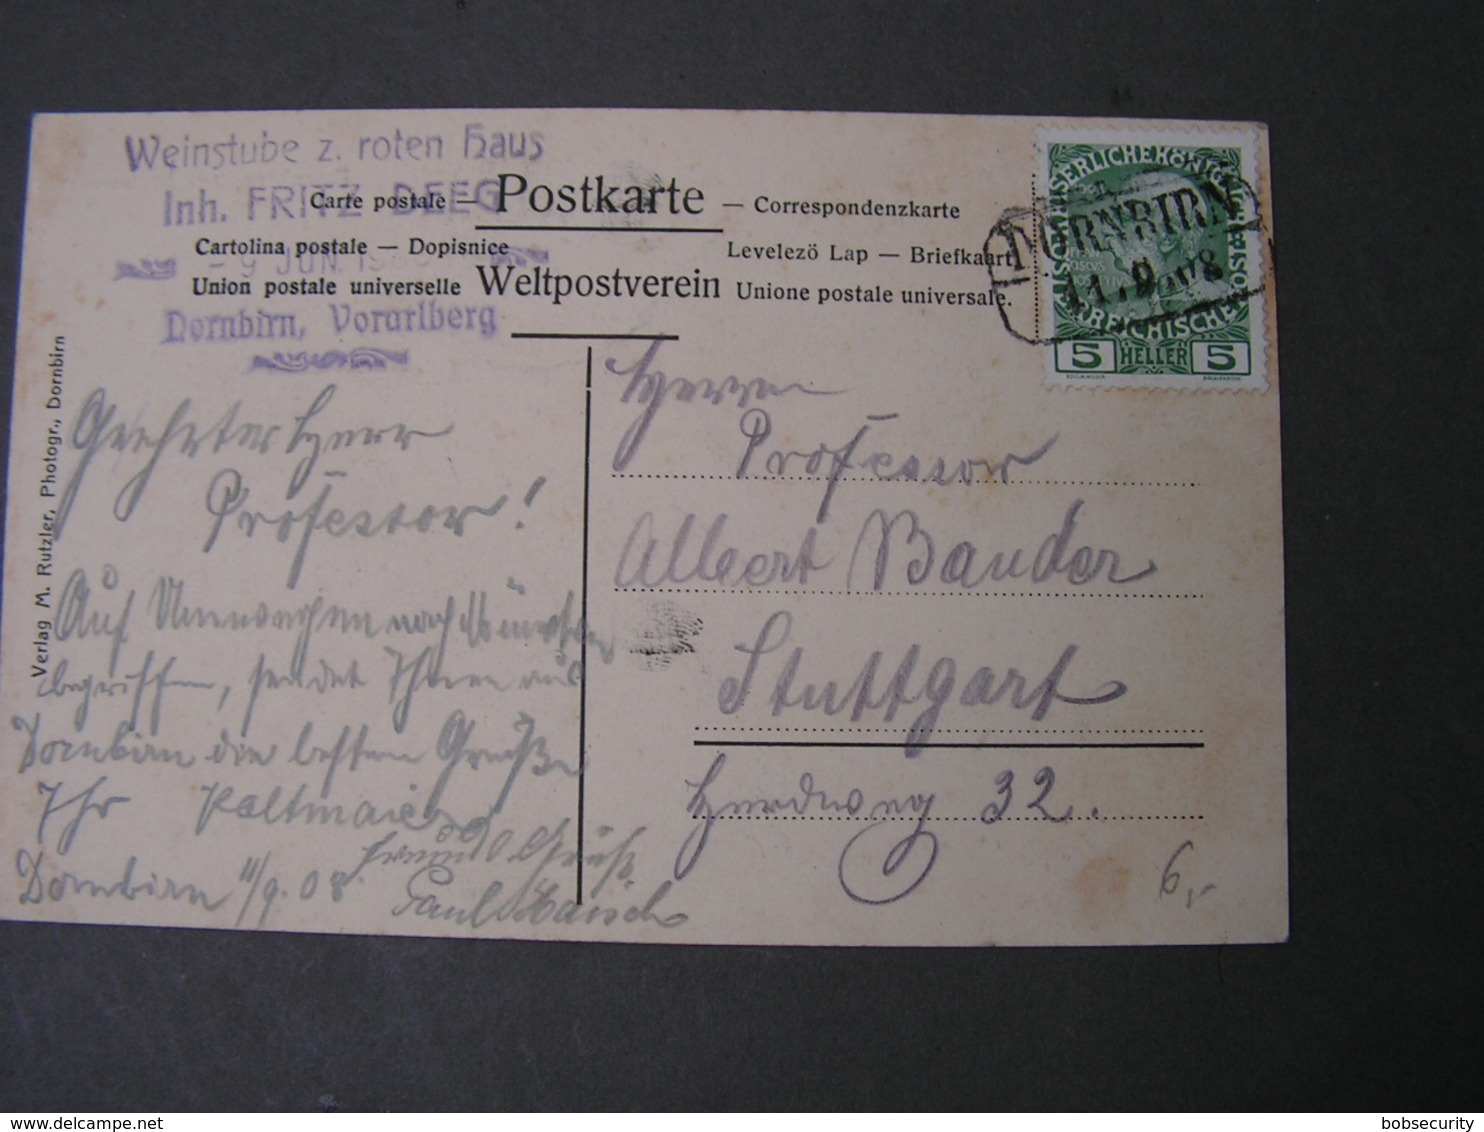 Weinstube z. roten Haus
Inh. FRITZ DEEG
- 9 JUN. 19
Dornbirn, Vorarlberg
Carte postale — Postkarte — Correspondenzkarte
Cartolina postale — Dopisnice
Levelező Lap — Briefkaart
Union postale universelle Weltpostverein Unione postale universale.
KAISERLICHE KÖNIGLICHE
ÖSTERREICHISCHE
5 HELLER 5
DORNBIRN
11.9.08
Verlag M. Rutzler, Photogr., Dornbirn
Geehrter Herr
Professor!
Auf nach
begriffen, sendet Ihnen aus
Dornbirn die besten Grüße
Ihr Kaltmaier
Dornbirn 11/9.08
Gruß
Paul
Herrn
Professor
Albert Bauder
Stuttgart
Herdweg 32.
6,-
bobsecurity